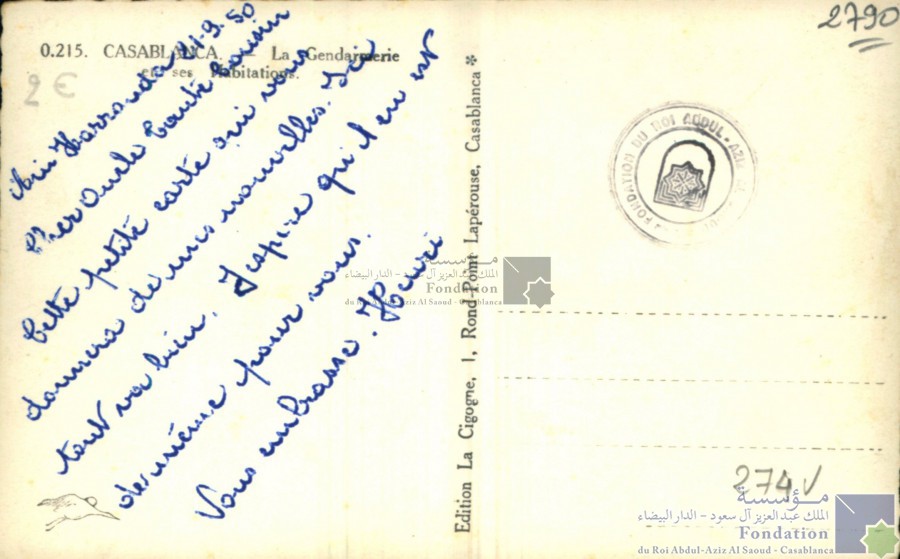 2790
0.215. CASABLANCA. — La Gendarmerie
et ses Habitations.
2 €
Aïn Harrouda 21-9-50
Cher Oncle Tante Cousin
Cette petite carte qui vous
donnera de mes nouvelles. Ici
tout va bien. J'espère qu'il en est
de même pour vous.
Vous embrasse. Henri
Edition La Cigogne, 1, Rond-Point Lapérouse, Casablanca *
FONDATION DU ROI ABDUL-AZIZ
مؤسسة
الملك عبد العزيز آل سعود - الدار البيضاء
Fondation
du Roi Abdul-Aziz Al Saoud - Casablanca
274 V
مؤسسة
الملك عبد العزيز آل سعود - الدار البيضاء
Fondation
du Roi Abdul-Aziz Al Saoud - Casablanca